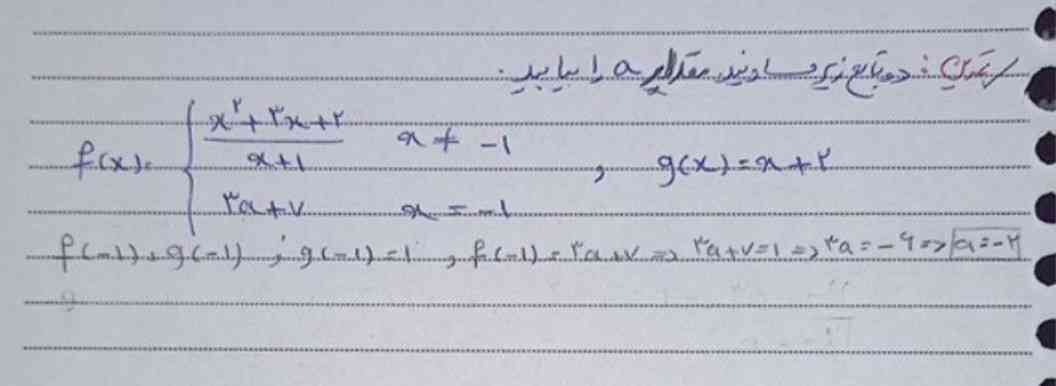 تمرین: دو تابع زیر مساویند مقدار a را بیابید.
f(x)= { (x^۲+۳x+۲)/(x+۱) x ≠ -۱ , g(x)=x+۲
۳a+۷ x = -۱
f(-۱)=g(-۱) ; g(-۱)=۱ , f(-۱)=۳a+۷ => ۳a+۷=۱ => ۳a=-۶ => a=-۲